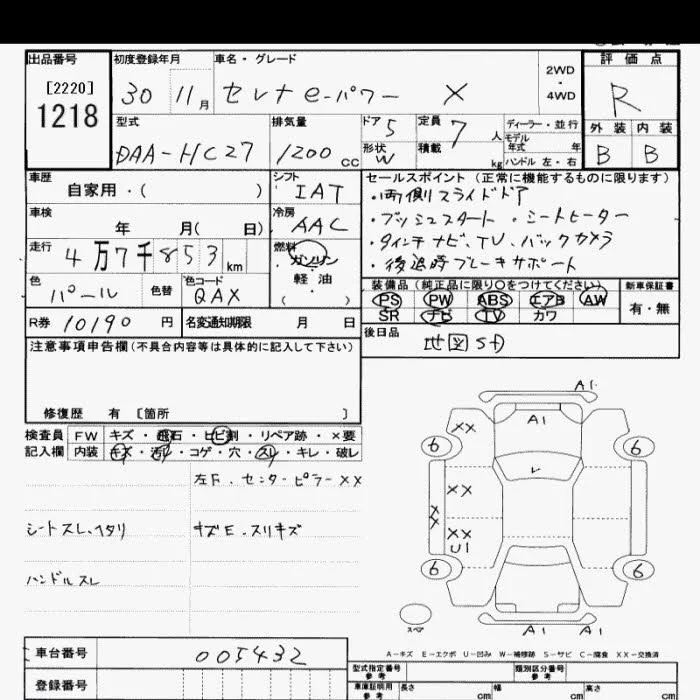 出品番号 初度登録年月 車名・グレード 評価点
[2220] 2WD・4WD
1218 30 11月 セレナe-パワー X R
型式 排気量 ドア 定員 ディーラー・並行 外装 内装
DAA-HC27 1200cc 5 7人 モデル年式 年 B B
形状 W 積載 kg ハンドル 左・右
車歴 シフト セールスポイント(正常に機能するものに限ります)
自家用・( ) IAT ・両側スライドドア
車検 冷房 ・プッシュスタート ・シートヒーター
年 月( 日) AAC ・9インチナビ、TV、バックカメラ
走行 燃料 ・後退時ブレーキサポート
4万7千853km ガソリン・軽油( )
色 色替 色コード 装備品(純正品に限り○をつけてください) 新車保証書
パール QAX PS PW ABS エアB AW 有・無
SR ナビ TV カワ
R券 10190円 名変通知期限 月 日 後日品
地図Sd
注意事項申告欄(不具合内容等は具体的に記入して下さい)
修復歴 有 〔箇所 〕
検査員 FW キズ・飛石・ヒビ割・リペア跡・×要
記入欄 内装 キズ・汚レ・コゲ・穴・スレ・キレ・破レ
左F.センターピラーXX
シートスレ、ヘタリ キズE.スリキズ
ハンドルスレ
A1
A1
XX
6 6
XX
XX
XX
U1
6 6
スペア
A1 A1
A-キズ E-エクボ U-凹み W-補修跡 S-サビ C-腐食 XX-交換済
車台番号 005432
登録番号
型式指定番号 参考 類別区分番号 参考
車庫証明用 参考 長さ cm 幅 cm 高さ cm